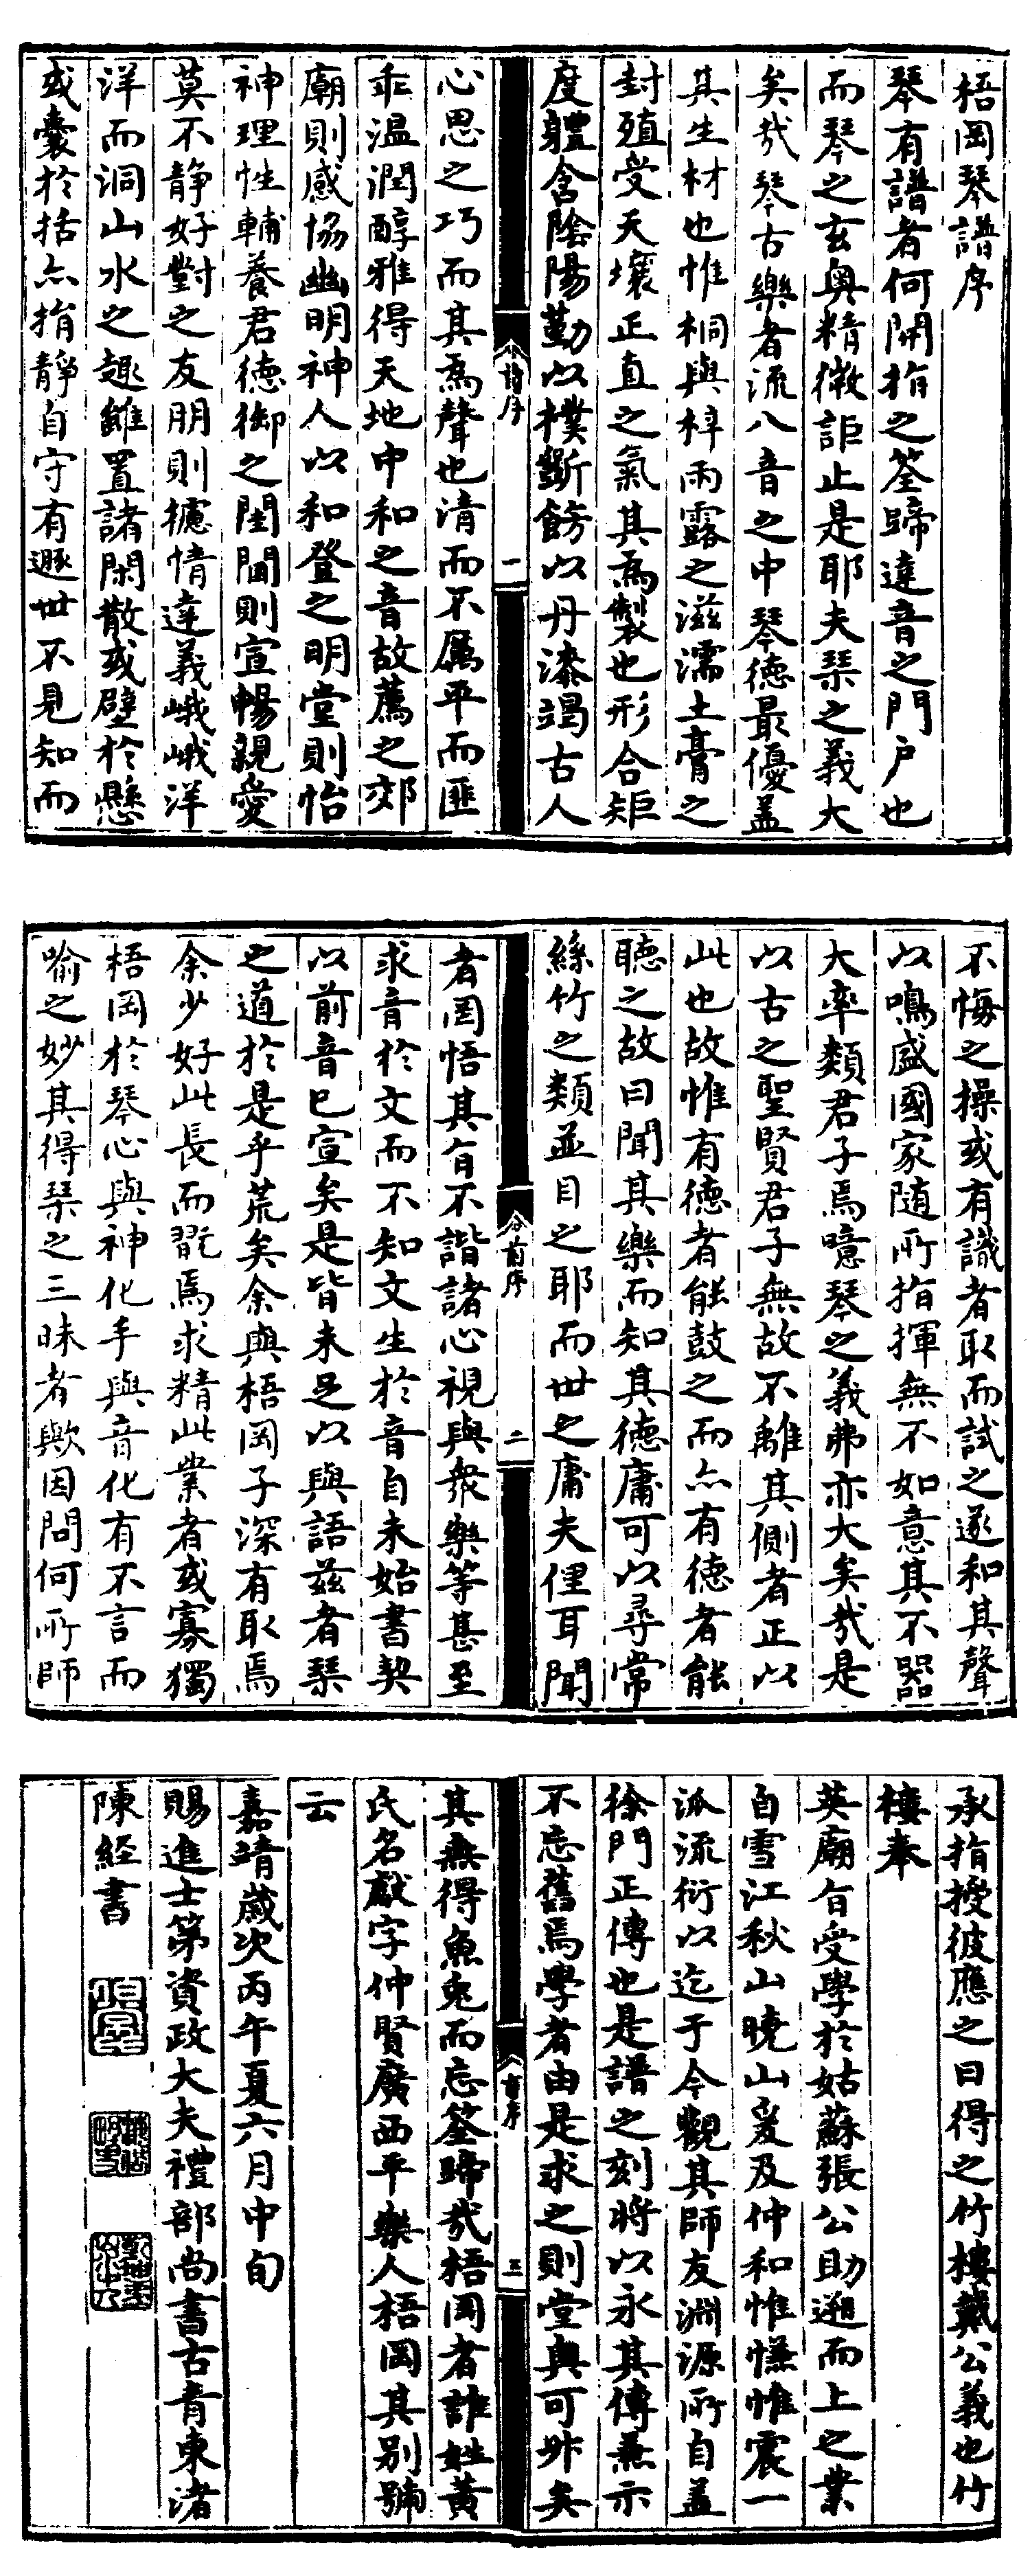 梧岡琴譜序
琴有譜者何開指之筌蹄達音之門戶也
而琴之玄奧精微詎止是耶夫琴之義大
矣哉琴古樂者流八音之中琴德最優盖
其生材也惟桐與梓雨露之滋濡土膏之
封殖受天壤正直之氣其為製也形合矩
度軆含陰陽勤以樸斲飾以丹漆竭古人
心思之巧而其為聲也清而不厲平而匪
乖温潤醇雅得天地中和之音故薦之郊
廟則感協幽明神人以和登之明堂則怡
神理性輔養君德御之閨閫則宣暢親愛
莫不静好對之友朋則攄情達義峨峨洋
洋而洞山水之趣雖置諸閑散或壁於懸
或囊於括亦揹靜自守有遯世不見知而
不悔之操或有識者取而試之遂和其聲
以鳴盛國家随所指揮無不如意其不器
大率類君子焉噫琴之義弗亦大矣哉是
以古之聖賢君子無故不離其側者正以
此也故惟有德者能鼓之而亦有德者能
聽之故曰聞其樂而知其德庸可以尋常
絲竹之類並目之耶而世之庸夫俚耳聞
者罔悟其旨不諧諸心視與衆樂等甚至
求音於文而不知文生於音自未始書契
以前音已宣矣是皆未足以與語兹者琴
之道於是乎荒矣余與梧岡子深有取焉
余少好此長而翫焉求精此業者或寡獨
梧岡於琴心與神化手與音化有不言而
喻之妙其得琴之三昧者歟因問何所師
承指授彼應之曰得之竹樓戴公義也竹
樓奉
英廟旨受學於姑蘇張公助遡而上之業
自雪江秋山曉山爰及仲和惟慊惟震一
派流衍以迄于今觀其師友淵源所自盖
徐門正傳也是譜之刻將以永其傳兼示
不忘舊焉學者由是求之則堂奥可升矣
其無得魚兎而忘筌蹄哉梧岡者誰姓黃
氏名獻字仲賢廣西平樂人梧岡其别號
云
嘉靖歲次丙午夏六月中旬
賜進士第資政大夫禮部尚書古青東渚
陳經書